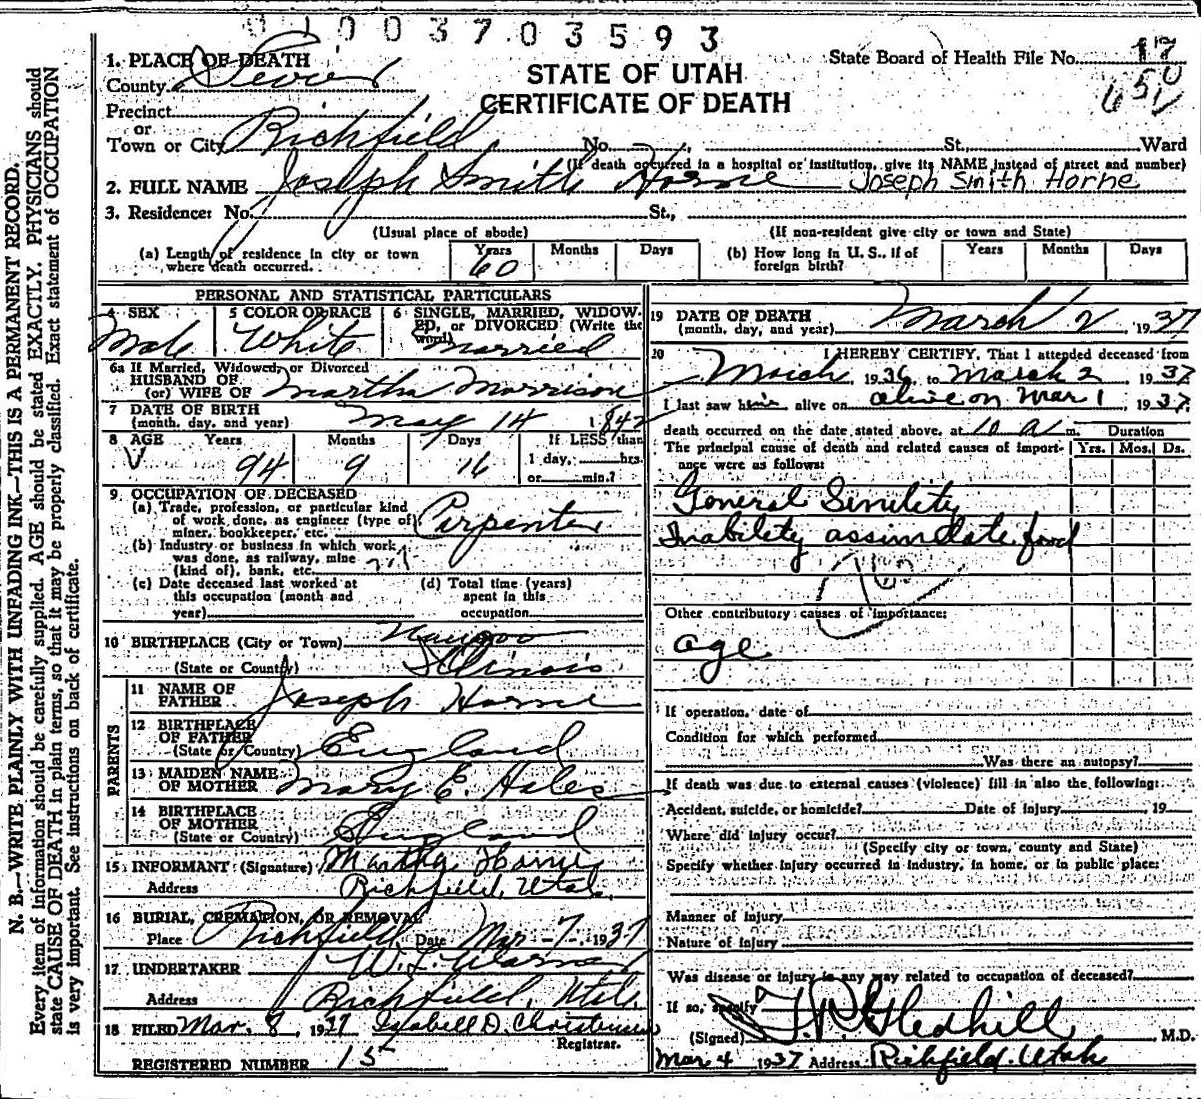 010037.03593
1. PLACE OF DEATH
County Sevier
STATE OF UTAH
CERTIFICATE OF DEATH
State Board of Health File No. 17
650
Precinct
or
Town or City Richfield No. St., Ward
(If death occurred in a hospital or institution, give its NAME instead of street and number)
2. FULL NAME Joseph Smith Horne Joseph Smith Horne
3. Residence: No. St.,
(Usual place of abode) (If non-resident give city or town and State)
(a) Length of residence in city or town where death occurred. Years 60 Months Days (b) How long in U. S., if of foreign birth? Years Months Days
PERSONAL AND STATISTICAL PARTICULARS
4 SEX Male
5 COLOR OR RACE White
6 SINGLE, MARRIED, WIDOWED, or DIVORCED (Write the word) Married
6a If Married, Widowed, or Divorced
HUSBAND OF
(or) WIFE OF Martha Morrison
7 DATE OF BIRTH
(month, day, and year) May 14 1842
8 AGE Years Months Days If LESS than
94 9 16 1 day, hrs.
or min.?
9 OCCUPATION OF DECEASED
(a) Trade, profession, or particular kind
of work done, as engineer (type of)
miner, bookkeeper, etc. Carpenter
(b) Industry or business in which work
was done, as railway, mine
(kind of), bank, etc.
(c) Date deceased last worked at
this occupation (month and
year)
(d) Total time (years)
spent in this
occupation
10 BIRTHPLACE (City or Town) Nauvoo
(State or Country) Illinois
PARENTS
11 NAME OF
FATHER Joseph Horne
12 BIRTHPLACE
OF FATHER
(State or Country) England
13 MAIDEN NAME
OF MOTHER Mary E. Hales
14 BIRTHPLACE
OF MOTHER
(State or Country) England
15 INFORMANT (Signature) Martha Horne
Address Richfield, Utah.
16 BURIAL, CREMATION, OR REMOVAL
Place Richfield Date Mar - 7 - 1937
17 UNDERTAKER W. L.
Address Richfield, Utah
18 FILED Mar. 8, 1937 Isabell D. Christensen
Registrar.
REGISTERED NUMBER 15
19 DATE OF DEATH
(month, day, and year) March 2, 1937
20 I HEREBY CERTIFY, That I attended deceased from
March, 1936, to March 2 1937
I last saw him alive on alive on Mar 1, 1937.
death occurred on the date stated above, at 10 a m. Duration
The principal cause of death and related causes of importance were as follows: Yrs. Mos. Ds.
General Sinility
Inability assimilate food
Other contributory causes of importance:
age
If operation, date of
Condition for which performed
Was there an autopsy?
If death was due to external causes (violence) fill in also the following:
Accident, suicide, or homicide? Date of injury 19
Where did injury occur?
(Specify city or town, county and State)
Specify whether injury occurred in industry, in home, or in public place:
Manner of injury
Nature of injury
Was disease or injury in any way related to occupation of deceased?
If so, specify
(Signed) T. R. Gledhill, M.D.
Mar 4 1937 Address Richfield Utah
N. B.—WRITE PLAINLY WITH UNFADING INK—THIS IS A PERMANENT RECORD.
Every item of information should be carefully supplied. AGE should be stated EXACTLY. PHYSICIANS should
state CAUSE OF DEATH in plain terms, so that it may be properly classified. Exact statement of OCCUPATION
is very important. See instructions on back of certificate.